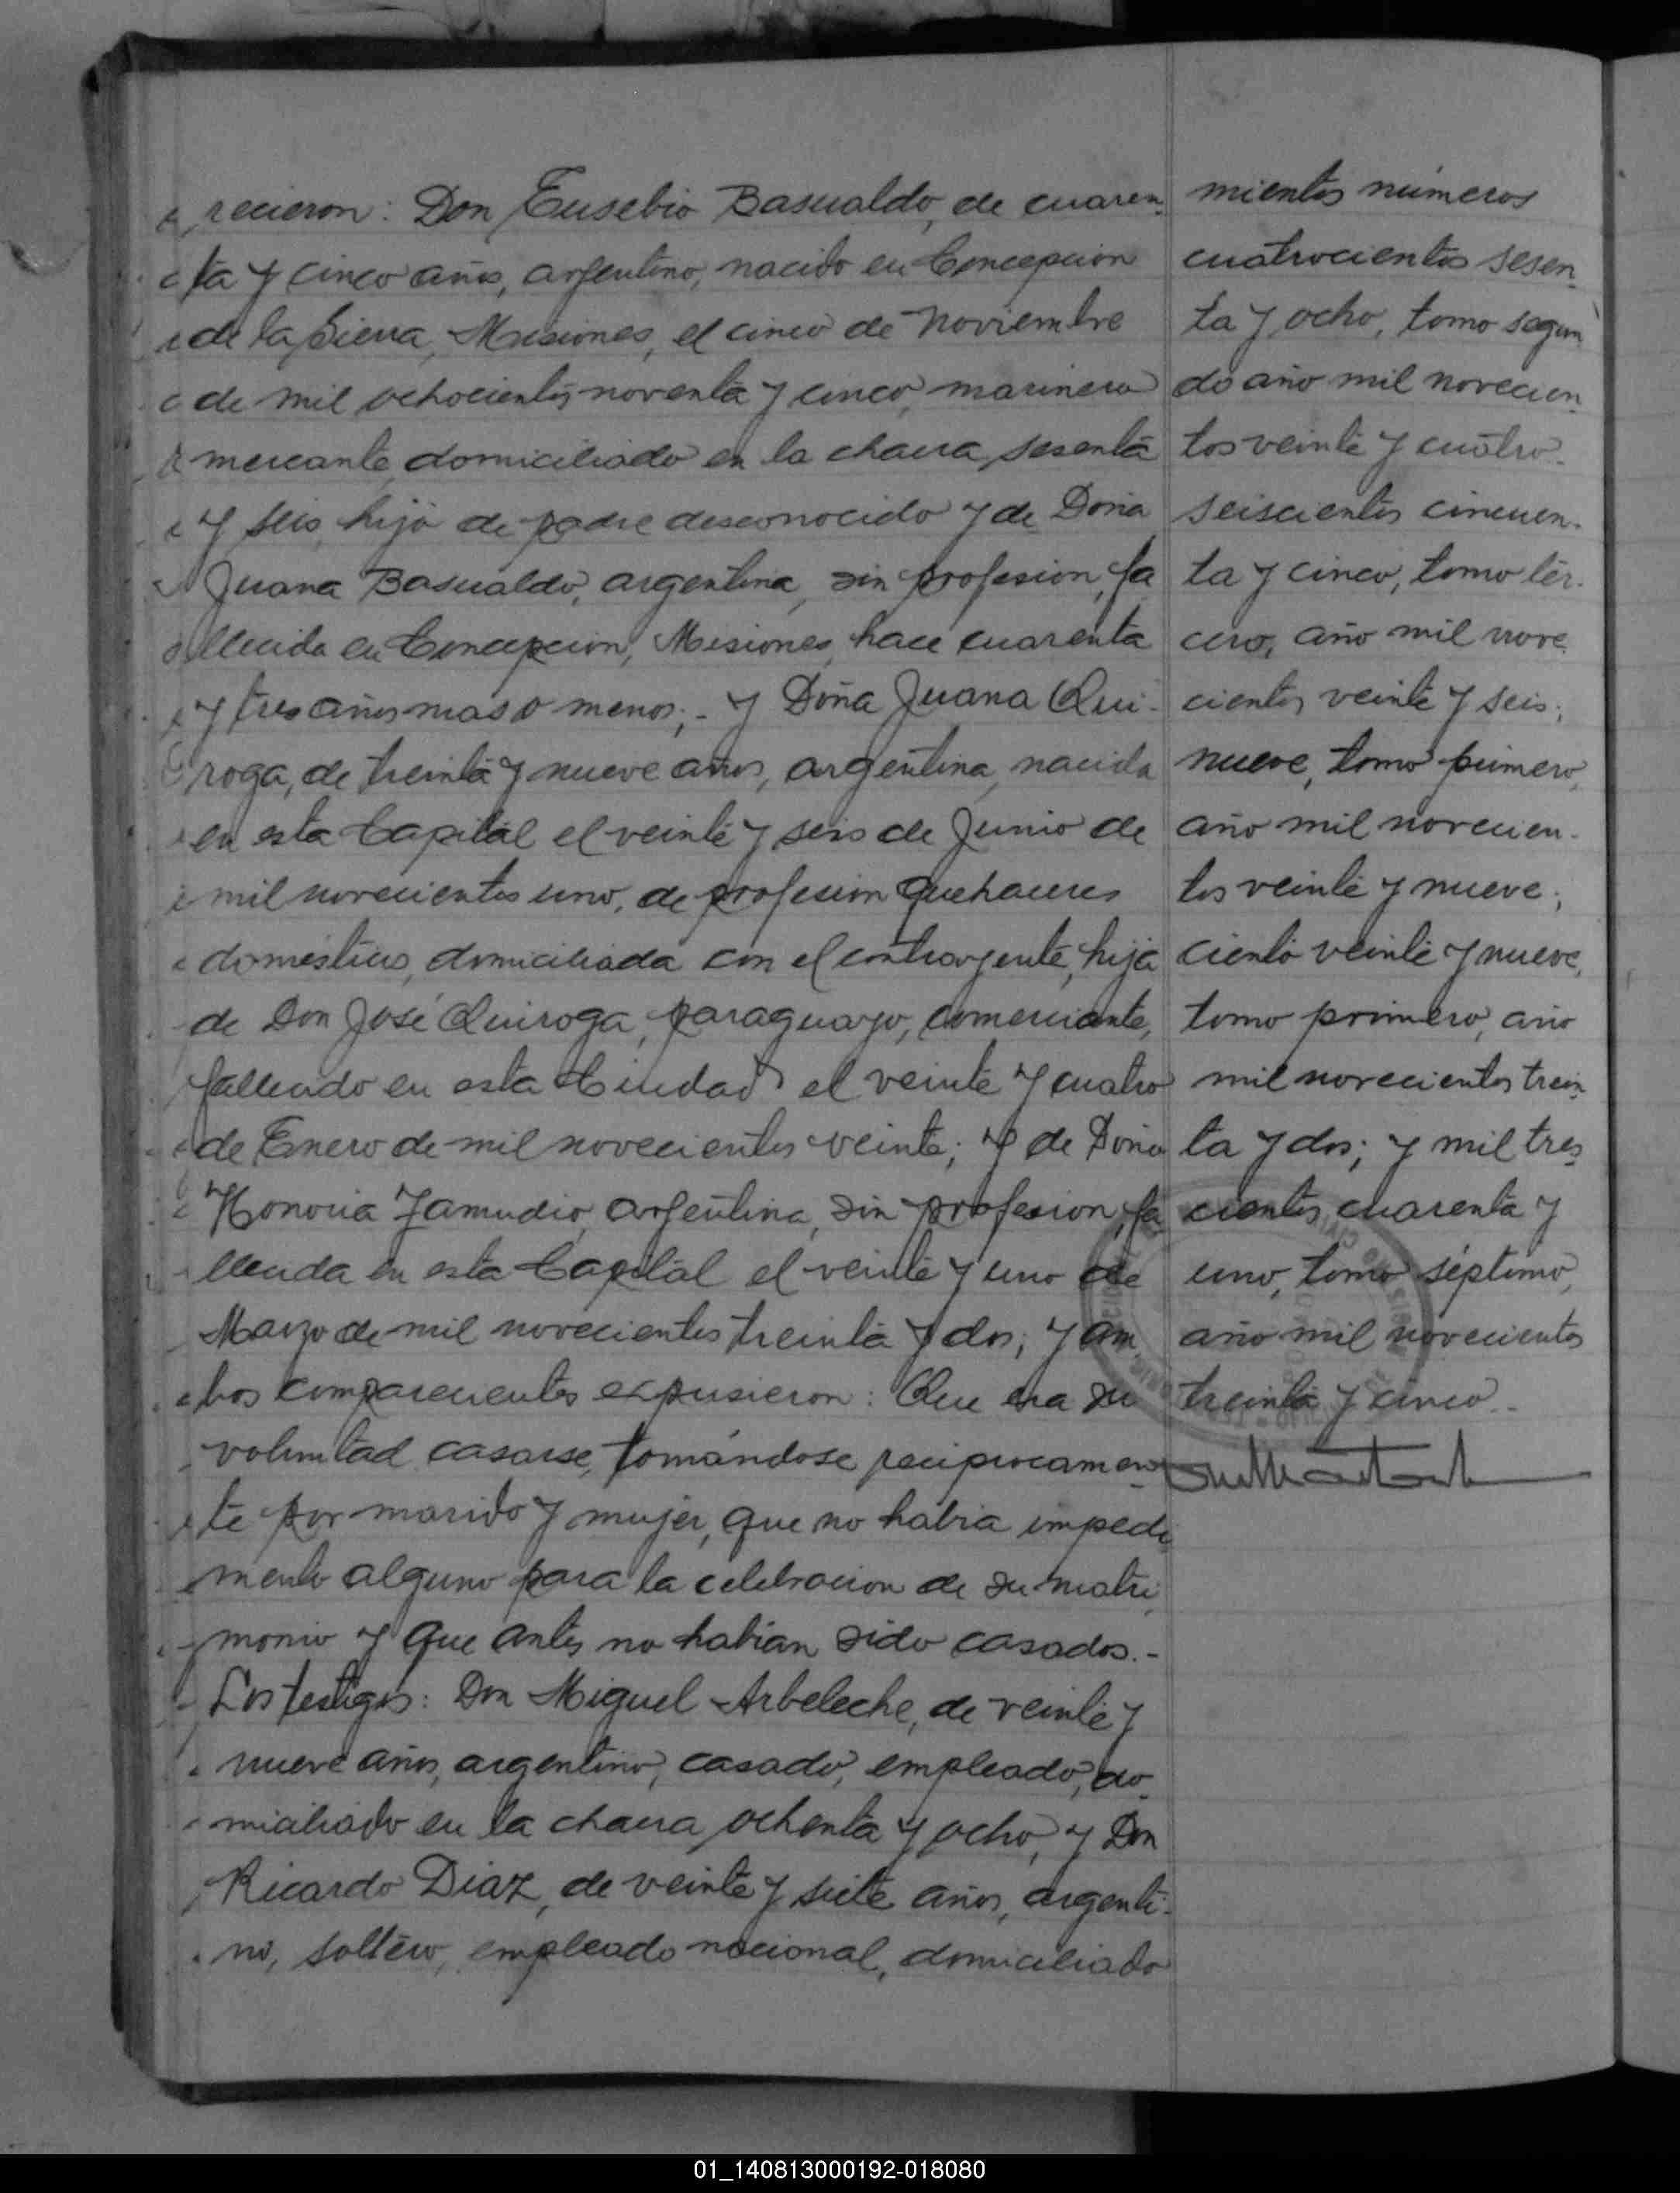 recieron: Don Eusebio Basualdo, de cuaren-
ta y cinco años, argentino, nacido en Concepcion
de la Sierra, Misiones, el cinco de Noviembre
de mil ochocientos noventa y cinco, marinero
mercante, domiciliado en la chacra sesenta
y seis, hijo de padre desconocido y de Doña
Juana Basualdo, argentina, sin profesion, fa
llecida en Concepcion, Misiones, hace cuarenta
y tres años mas o menos;- y Doña Juana Qui-
roga, de treinta y nueve años, argentina, nacida
en esta Capital el veinte y seis de Junio de
mil novecientos uno, de profesion quehaceres
domésticos, domiciliada con el contrayente, hija
de Don José Quiroga, paraguayo, comerciante,
fallecido en esta Ciudad el veinte y cuatro
de Enero de mil novecientos veinte; y de Doña
Honoria Zamudio, argentina, sin profesion, fa
llecida en esta Capital el veinte y uno de
Marzo de mil novecientos treinta y dos; y am
bos comparecientes expusieron: Que era su
voluntad casarse, tomándose reciprocamen-
te por marido y mujer, que no habia impedi
mento alguno para la celebracion de su matri
monio y que antes no habian sido casados.-
Los testigos: Don Miguel Arbeleche, de veinte y
nueve años, argentino, casado, empleado, do-
miciliado en la chacra ochenta y ocho, y Don
Ricardo Diaz, de veinte y siete años, argenti-
no, soltero, empleado nacional, domiciliado
mientos números
cuatrocientos sesen-
ta y ocho, tomo segun
do año mil novecien-
tos veinte y cuatro-
seiscientos cincuen-
ta y cinco, tomo ter-
cero, año mil nove-
cientos veinte y seis;
nueve, tomo primero,
año mil novecien-
tos veinte y nueve;
ciento veinte y nueve,
tomo primero, año
mil novecientos trein-
ta y dos; y mil tres-
cientos cuarenta y
uno, tomo séptimo,
año mil novecientos
treinta y cinco.-
01_140813000192-018080